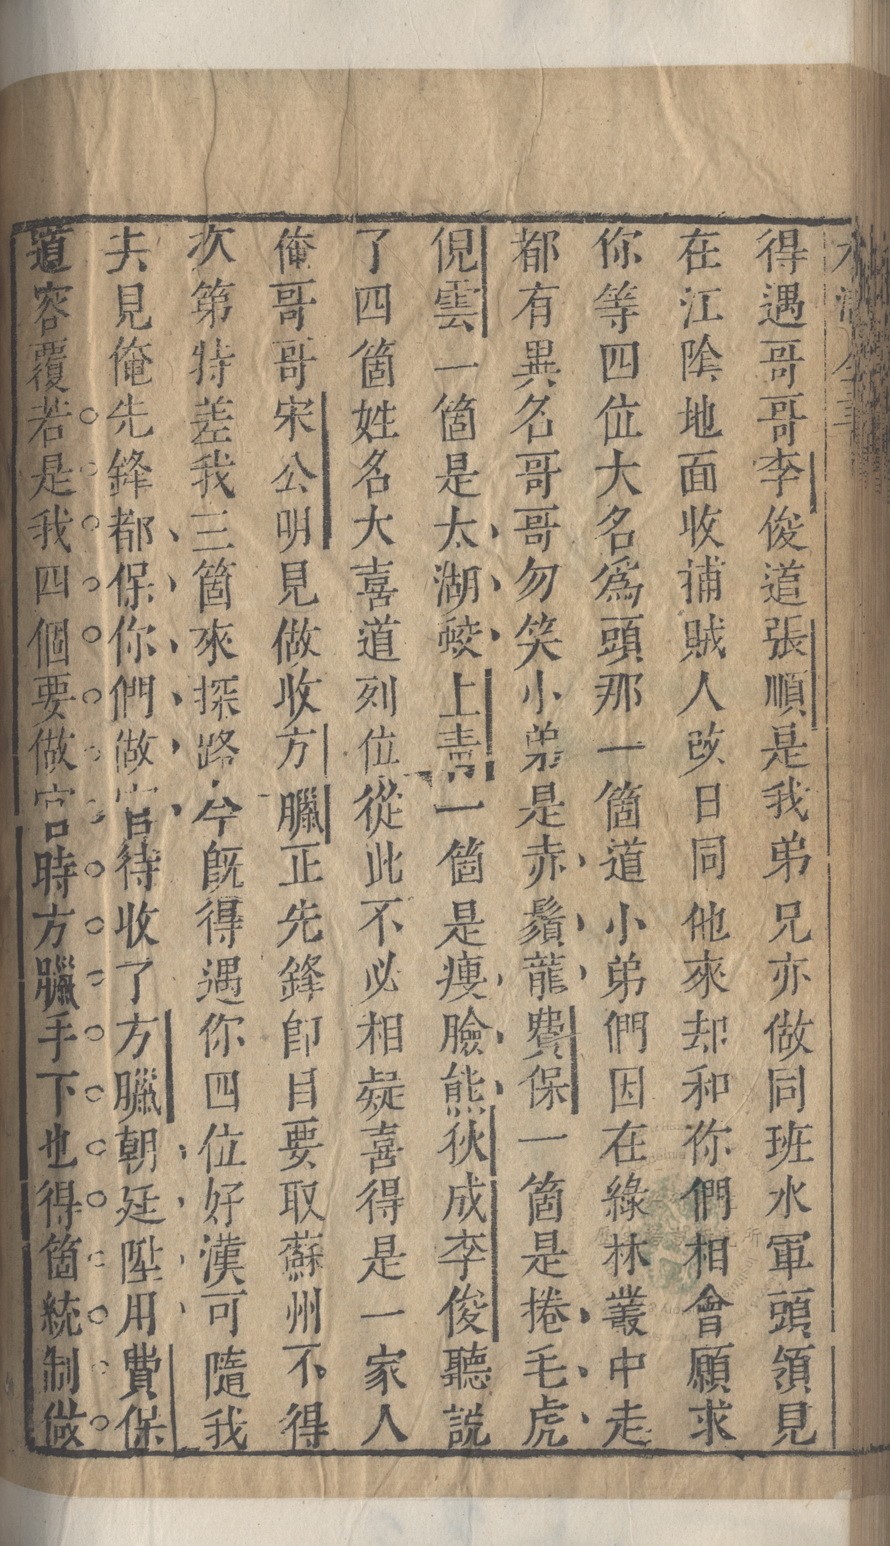 得遇哥哥李俊道張順是我弟兄亦做同班水軍頭領見
在江陰地面收捕賊人改日同他來却和你們相會願求
你等四位大名為頭那一箇道小弟們因在綠林叢中走
都有異名哥哥勿笑小弟是赤鬚龍費保一箇是捲毛虎
倪雲一箇是太湖蛟上青一箇是瘦臉熊狄成李俊聽說
了四箇姓名大喜道列位從此不必相疑喜得是一家人
俺哥哥宋公明見做收方臘正先鋒即目要取蘇州不得
次第特差我三箇來探路今既得遇你四位好漢可隨我
去見俺先鋒都保你們做官待收了方臘朝廷陞用費保
道容覆若是我四個要做官時方臘手下也得箇統制做